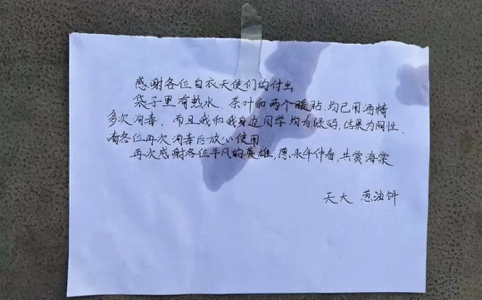 感谢各位白衣天使们的付出
袋子里有热水、茶叶和两个暖贴,均已用酒精
多次消毒。而且我和我身边同学均为绿码,结果为阴性。
请各位再次消毒后放心使用
再次感谢各位平凡的英雄,愿来年仲春,共赏海棠
天大 葱油饼